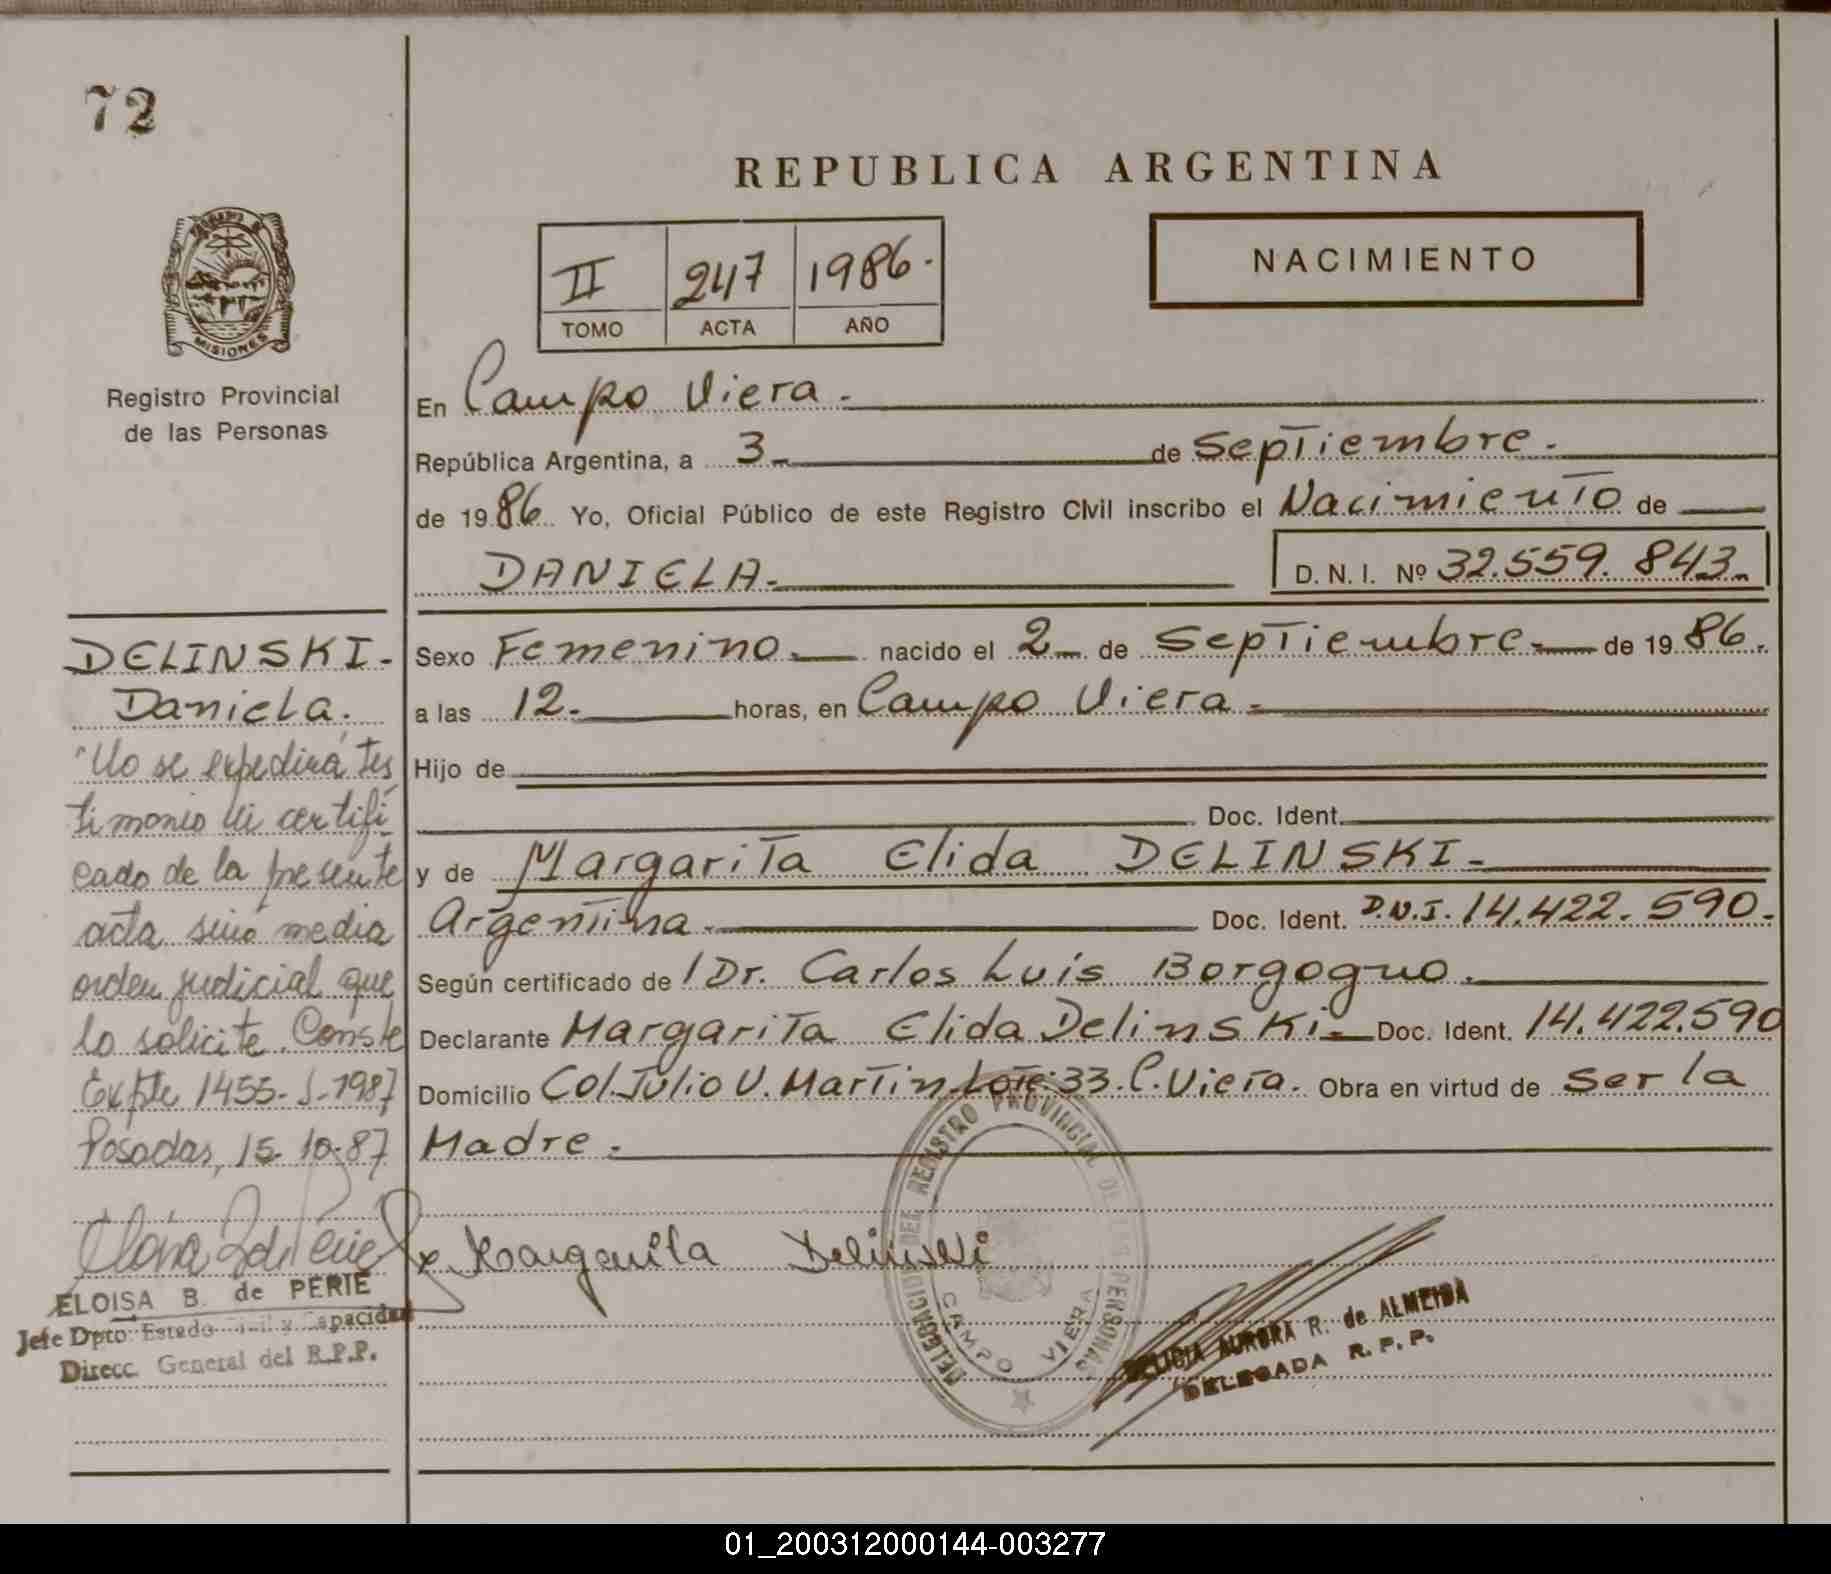 72
REPUBLICA ARGENTINA
II 247 1986.
TOMO ACTA AÑO
NACIMIENTO
MISIONES
Registro Provincial
de las Personas
En Campo Viera.
República Argentina, a 3 de Septiembre.
de 1986 Yo, Oficial Público de este Registro Civil inscribo el Nacimiento de
DANIELA. D. N. I. Nº 32.559.843.
Sexo Femenino. nacido el 2 de Septiembre de 1986.
a las 12. horas, en Campo Viera.
Hijo de
Doc. Ident.
y de Margarita Elida DELINSKI.
Argentina. Doc. Ident. D.N.I. 14.422.590.
Según certificado de / Dr. Carlos Luis Borgogno.
Declarante Margarita Elida Delinski. Doc. Ident. 14.422.590
Domicilio Col. Julio U. Martin Lote: 33. C. Viera. Obra en virtud de Ser la
Madre.
x Margarita Delinski
DELEGACION DEL REGISTRO PROVINCIAL DE LAS PERSONAS
CAMPO VIERA
DELICIA AURORA R. de ALMEIDA
DELEGADA R. P. P.
DELINSKI.
Daniela.
"No se expedirá tes
timonio ni certifi
cado de la presente
acta sinó media
orden judicial que
lo solicite. Conste
Expte 1455-S-1987
Posadas, 15-10-87
ELOISA B. de PERIE
Jefe Dpto. Estado Civil y Capacidad
Direcc. General del R.P.P.
01_200312000144-003277